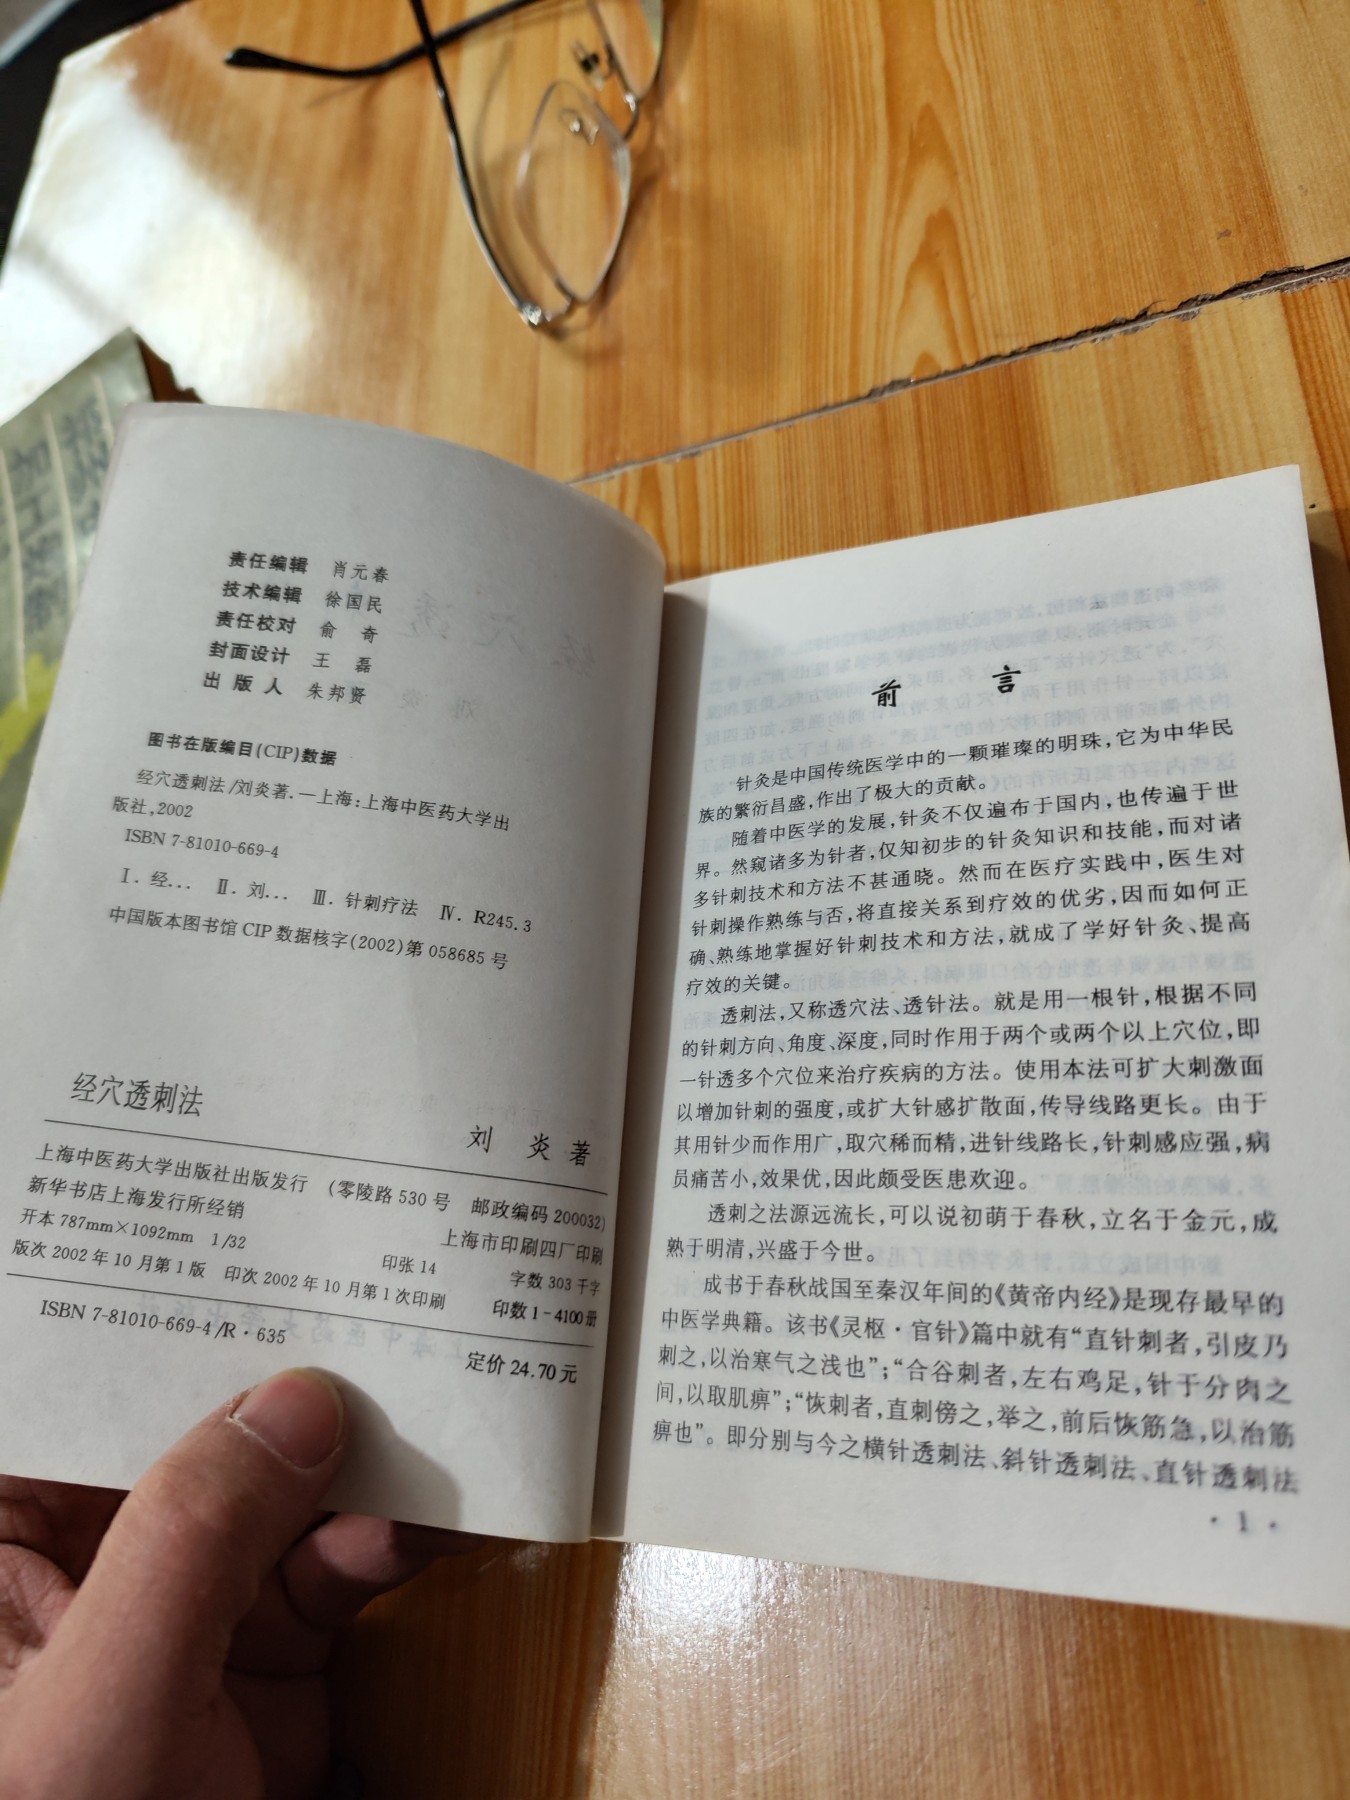 责任编辑 肖元春
技术编辑 徐国民
责任校对 俞 奇
封面设计 王 磊
出 版 人 朱邦贤
图书在版编目(CIP)数据
经穴透刺法/刘炎著.—上海:上海中医药大学出
版社,2002
ISBN 7-81010-669-4
Ⅰ.经... Ⅱ.刘... Ⅲ.针刺疗法 Ⅳ.R245.3
中国版本图书馆CIP数据核字(2002)第058685号
经穴透刺法
刘 炎 著
上海中医药大学出版社出版发行 (零陵路530号 邮政编码200032)
新华书店上海发行所经销 上海市印刷四厂印刷
开本787mm×1092mm 1/32 印张14 字数303千字
版次2002年10月第1版 印次2002年10月第1次印刷 印数1-4100册
ISBN 7-81010-669-4/R·635 定价24.70元
前 言
针灸是中国传统医学中的一颗璀璨的明珠,它为中华民
族的繁衍昌盛,作出了极大的贡献。
随着中医学的发展,针灸不仅遍布于国内,也传遍于世
界。然窥诸多为针者,仅知初步的针灸知识和技能,而对诸
多针刺技术和方法不甚通晓。然而在医疗实践中,医生对
针刺操作熟练与否,将直接关系到疗效的优劣,因而如何正
确、熟练地掌握好针刺技术和方法,就成了学好针灸、提高
疗效的关键。
透刺法,又称透穴法、透针法。就是用一根针,根据不同
的针刺方向、角度、深度,同时作用于两个或两个以上穴位,即
一针透多个穴位来治疗疾病的方法。使用本法可扩大刺激面
以增加针刺的强度,或扩大针感扩散面,传导线路更长。由于
其用针少而作用广,取穴稀而精,进针线路长,针刺感应强,病
员痛苦小,效果优,因此颇受医患欢迎。
透刺之法源远流长,可以说初萌于春秋,立名于金元,成
熟于明清,兴盛于今世。
成书于春秋战国至秦汉年间的《黄帝内经》是现存最早的
中医学典籍。该书《灵枢·官针》篇中就有“直针刺者,引皮乃
刺之,以治寒气之浅也”;“合谷刺者,左右鸡足,针于分肉之
间,以取肌痹”;“恢刺者,直刺傍之,举之,前后恢筋急,以治筋
痹也”。即分别与今之横针透刺法、斜针透刺法、直针透刺法
· 1 ·